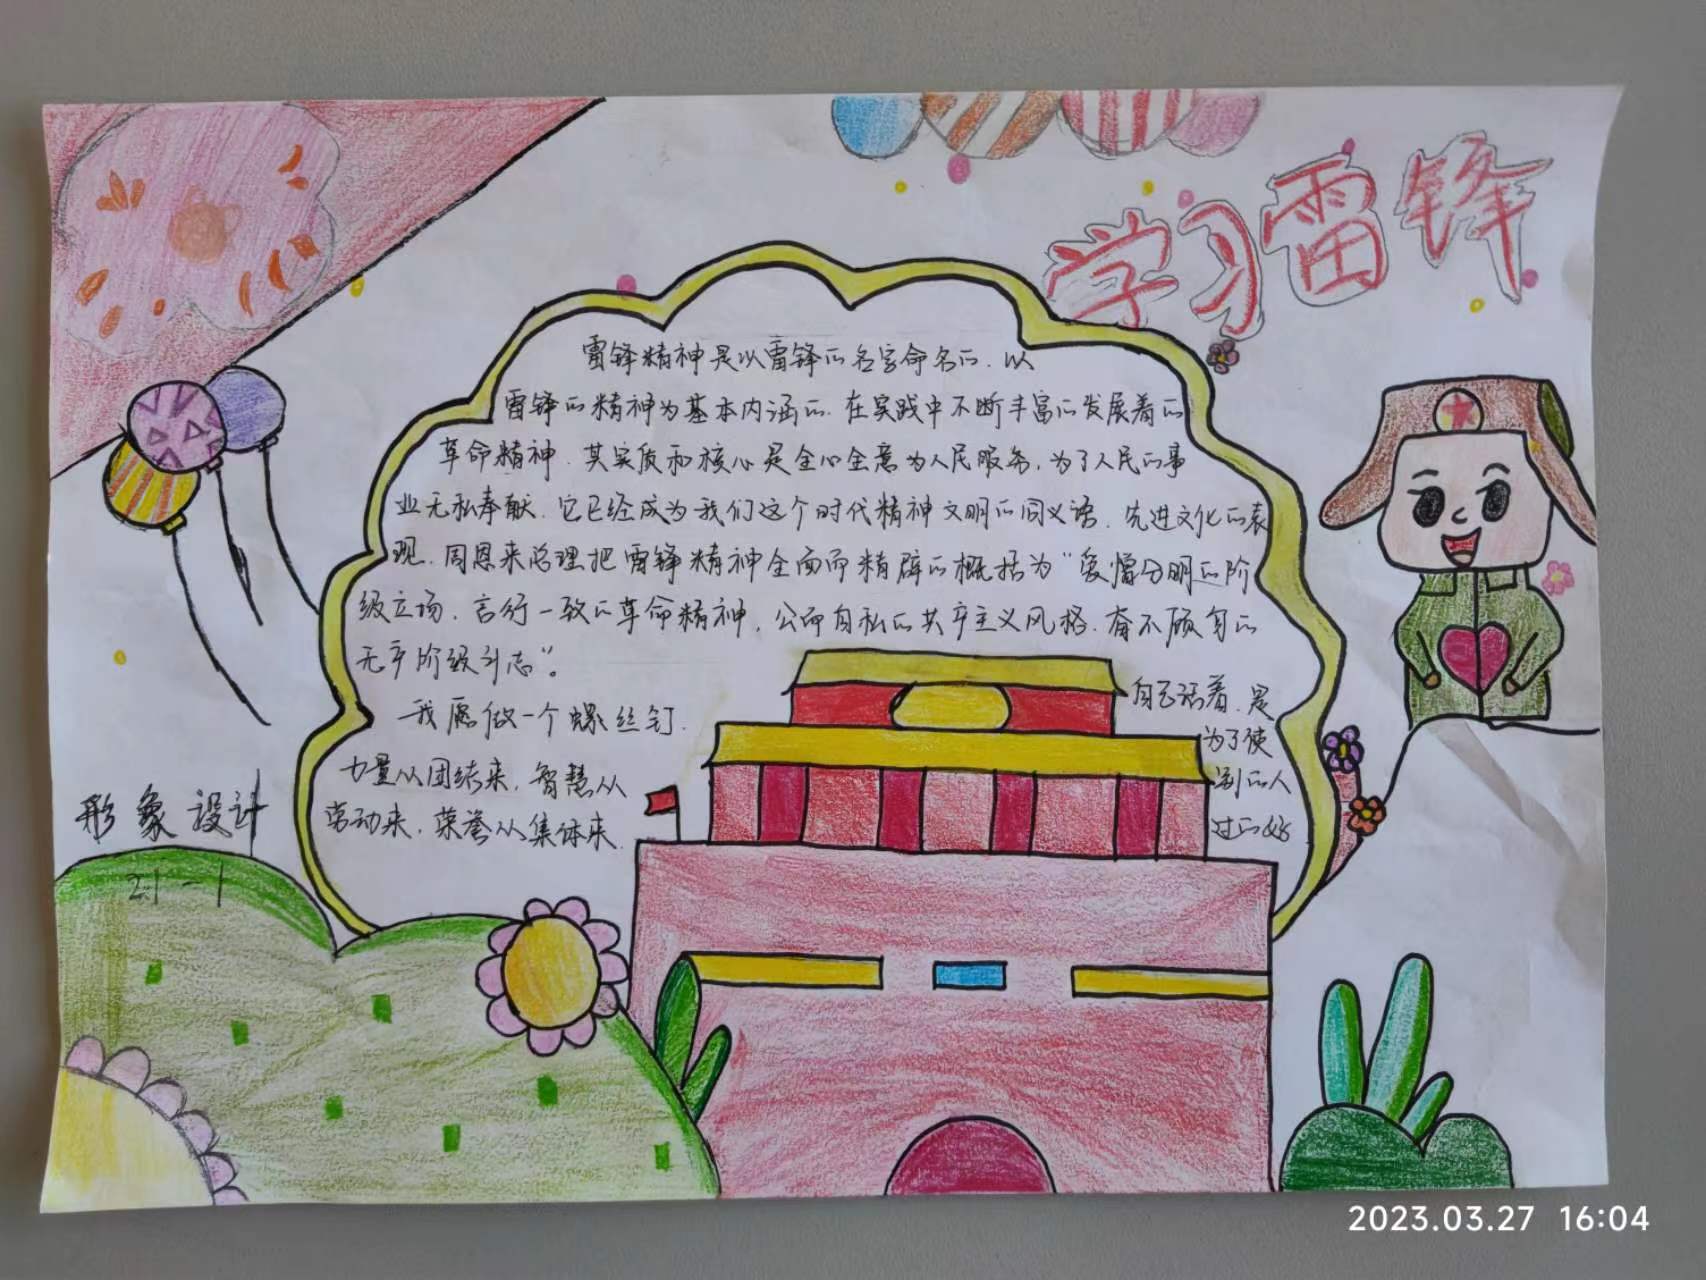 学习雷锋
雷锋精神是以雷锋的名字命名的.以
雷锋的精神为基本内涵的.在实践中不断丰富的发展着的
革命精神.其实质和核心是全心全意为人民服务,为了人民的事
业无私奉献.它已经成为我们这个时代精神文明的同义语.先进文化的表
现.周恩来总理把雷锋精神全面而精辟的概括为“爱憎分明的阶
级立场.言行一致的革命精神.公而自私的共产主义风格.奋不顾身的
无产阶级斗志”。
我愿做一个螺丝钉.
力量从团结来.智慧从
劳动来.荣誉从集体来.
自己活着.是
为了使
别的人
过的好
形象设计
21-1
2023.03.27 16:04